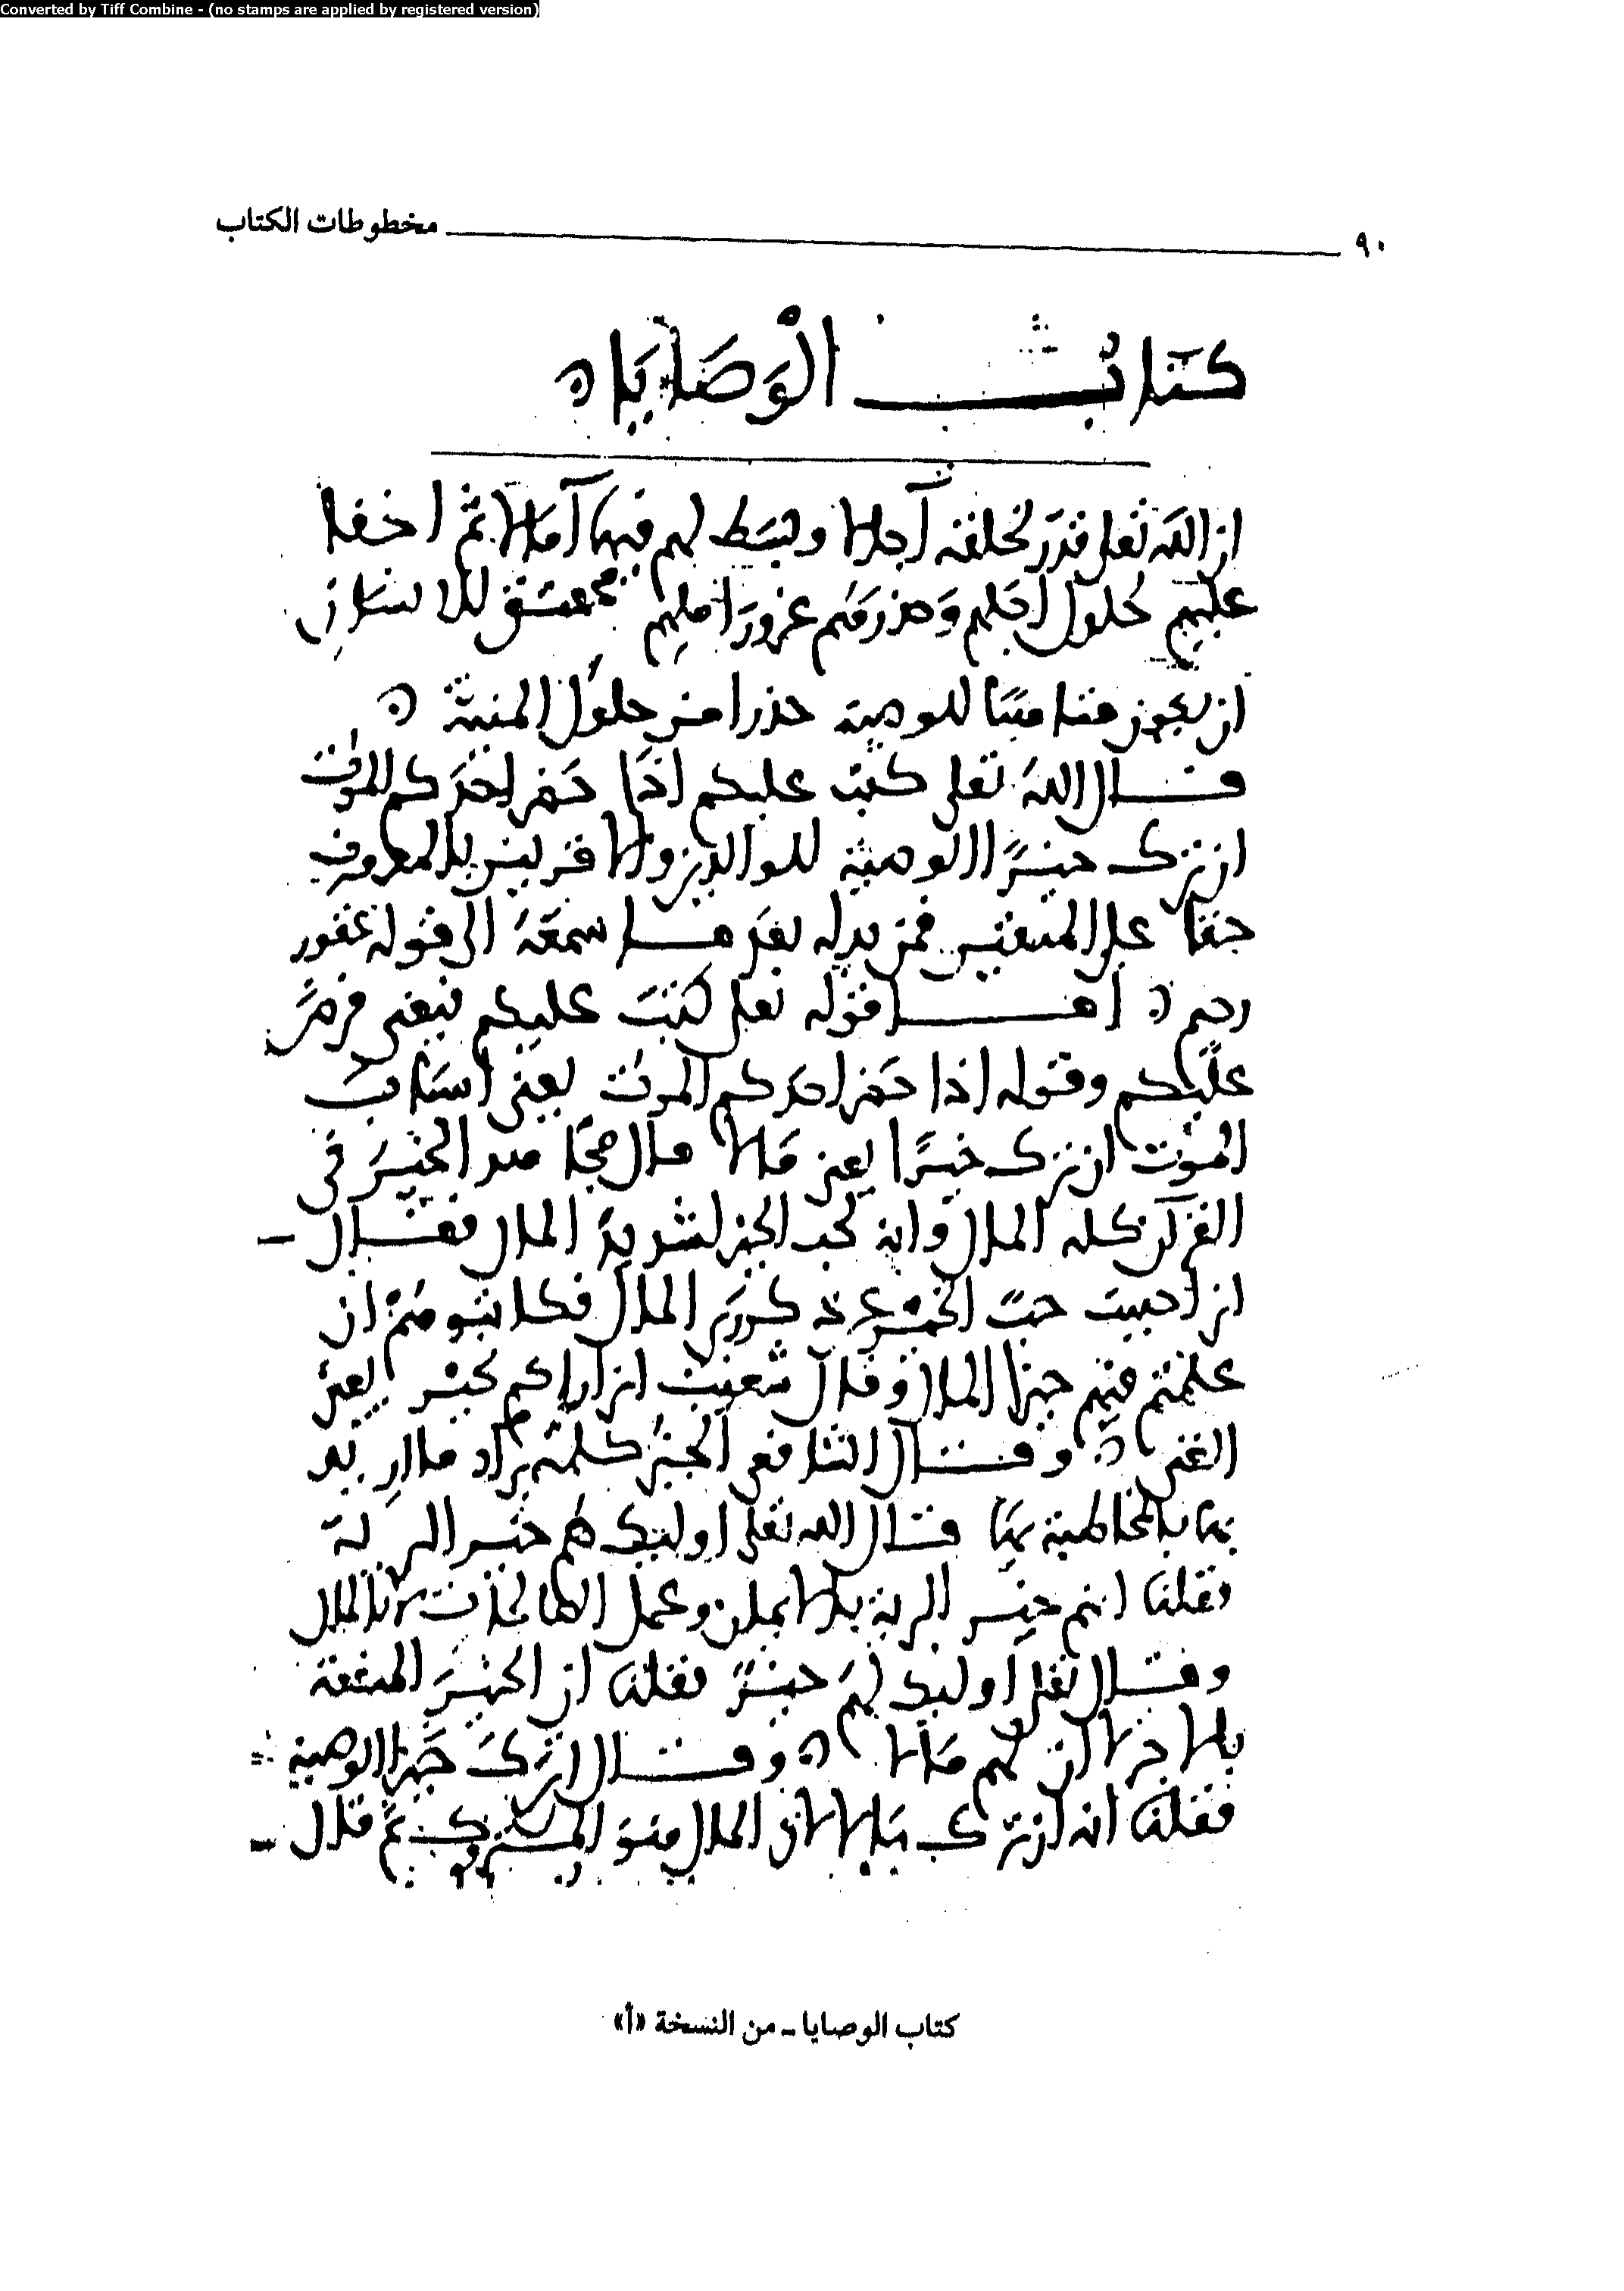 Converted by Tiff Combine - (no stamps are applied by registered version)
٩٠ مخطوطات الكتاب
كتاب الوَصَايَا ه
ان الله تعلى قدر لخلقه آجالا وبسط لهم فيها آمالا ثم اخفا
عليهم حُلول اجلهم وحذرهم غرور املهم فحقيق للانسان
ان يكون متاهبًا للوصية حذرا من حلول المنية ه
قال الله تعلى كتب عليكم اذا حَضر احدكم الموت
ان ترك خيرًا الوصية للوالدين والاقربين بالمعروف
حقا على المتقين فمن بدله بعد ما سمعَهُ الى قوله غفور
رحيم ه اما قوله تعلى كتبَ عليكم فيعنى فرض
عليكم وقوله اذا حَضر احدكم الموت يعنى اسباب
الموت ان ترك خيرًا يعنى مَالا قال مجاهد الخيرَ فى
القرآن كله المال وانه لحب الخير لشديد المال فقال
انى احببت حبّ الخير عن ذكر ربى المال فكاتبوهم ان
علمتم فيهم خيرا المال وقال شعيب انى اراكم بخير يعنى
الغنى ه وقال الشافعى الخيرُ كلمة يراد ما اريد
بها بالمخاطبة بها قال الله تعلى اوليك هم خير البرية
فقلنا انهم خير البرية بالايمان وعمل الصالحات لا بالمال
وقال تعلى لهم خيرٌ فقلنا ان الخيرَ المنفعة
بالاجر لا ان لهم مَالا ه وقال ان ترك خيرا الوصية
فقلنا انه ان ترك مالا لان المال هو المتروك ثم قال
كتاب الوصايا - من النسخة «أ»